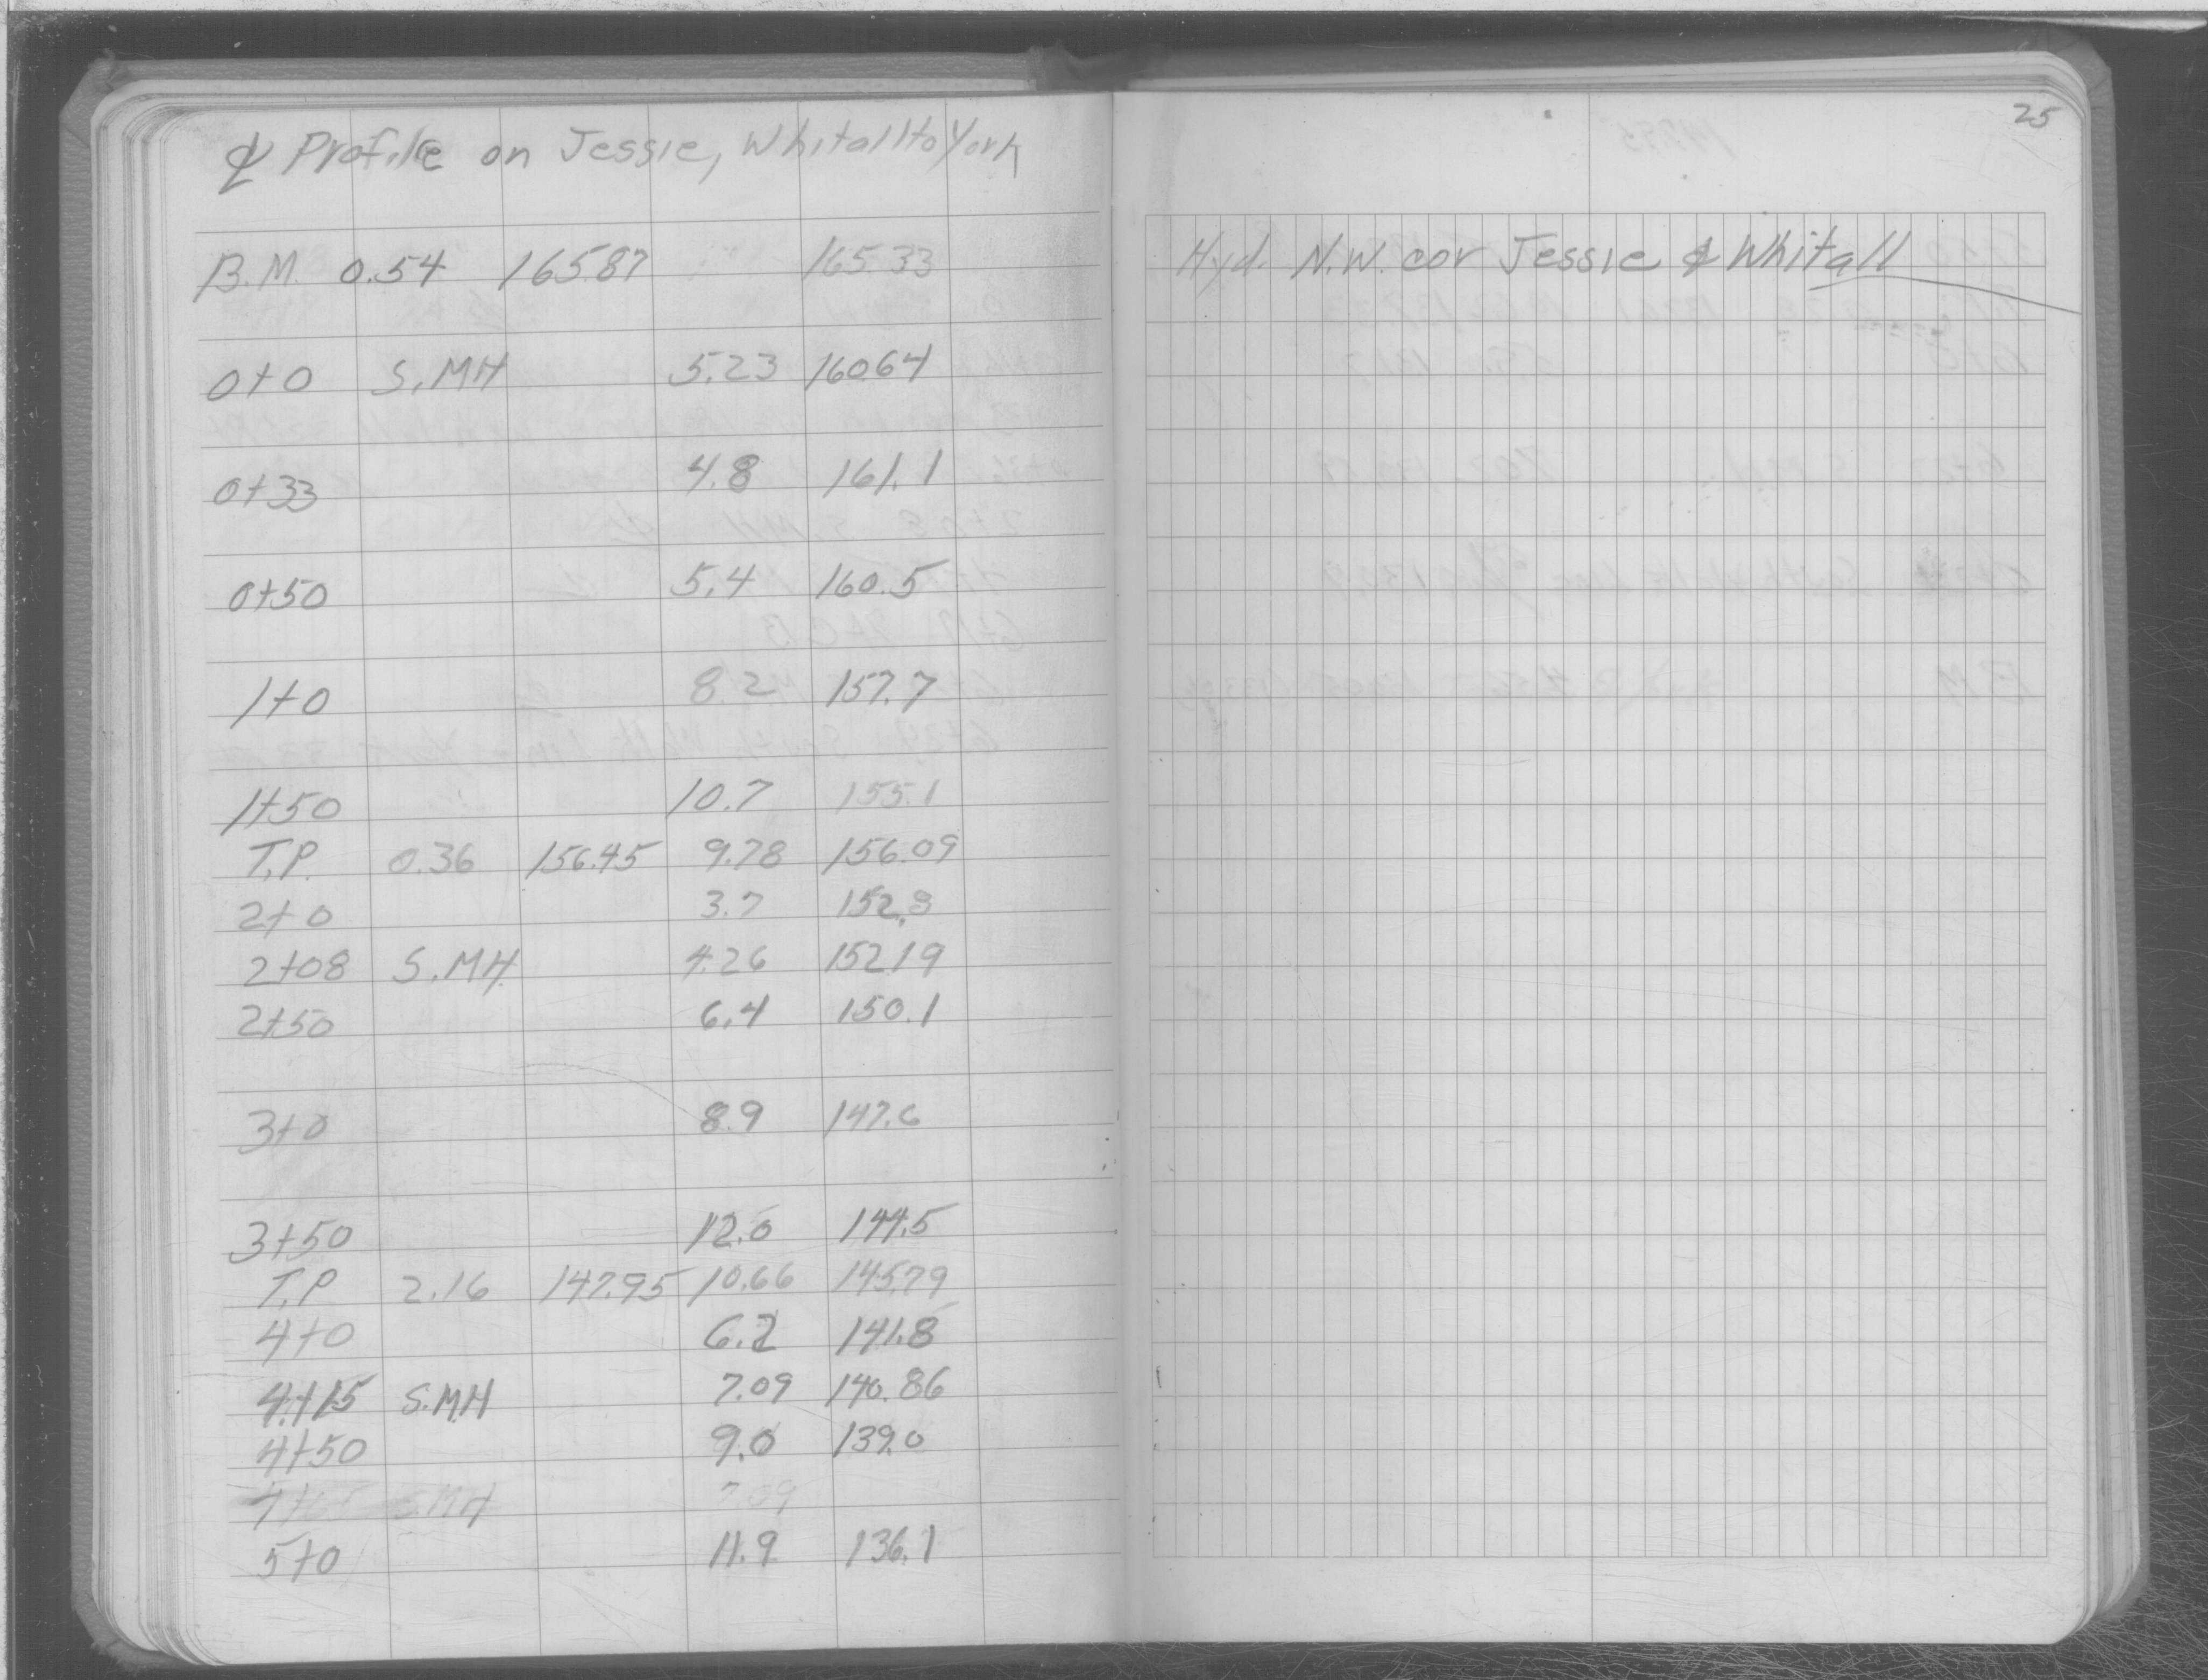 ℄ Profile on Jessie, Whitall to York
B.M. 0.54 165.87 165.33
0+0 S.MH 5.23 160.64
0+33 4.8 161.1
0+50 5.4 160.5
1+0 8.2 157.7
1+50 10.7 155.1
T.P. 0.36 156.45 9.78 156.09
2+0 3.7 152.8
2+08 S.MH. 4.26 152.19
2+50 6.4 150.1
3+0 8.9 147.6
3+50 12.0 144.5
T.P 2.16 147.95 10.66 145.79
4+0 6.2 141.8
4+15 S.MH 7.09 140.86
4+50 9.0 139.0
S.MH 7.09
5+0 11.9 136.1
25
Hyd. N.W. cor Jessie & Whitall